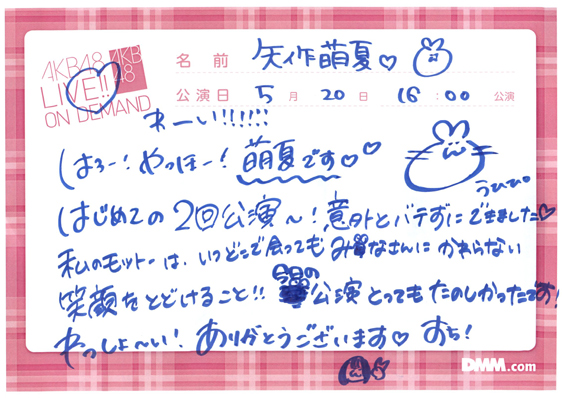 AKB48
LIVE!!
ON DEMAND
AKB
48
名前 矢作萌夏♡
公演日 5月20日 16:00 公演
わーい!!!!!!
はろー!やっほー!萌夏です♡♡
うひひ°
はじめての2回公演〜!意外とバテずにできました♡
私のモットーは、いつどこで会ってもみなさんにかわらない
笑顔をとどけること!!今日の公演とってもたのしかったです!
わっしょ〜い!ありがとうございます♡ すち!
DMM.com